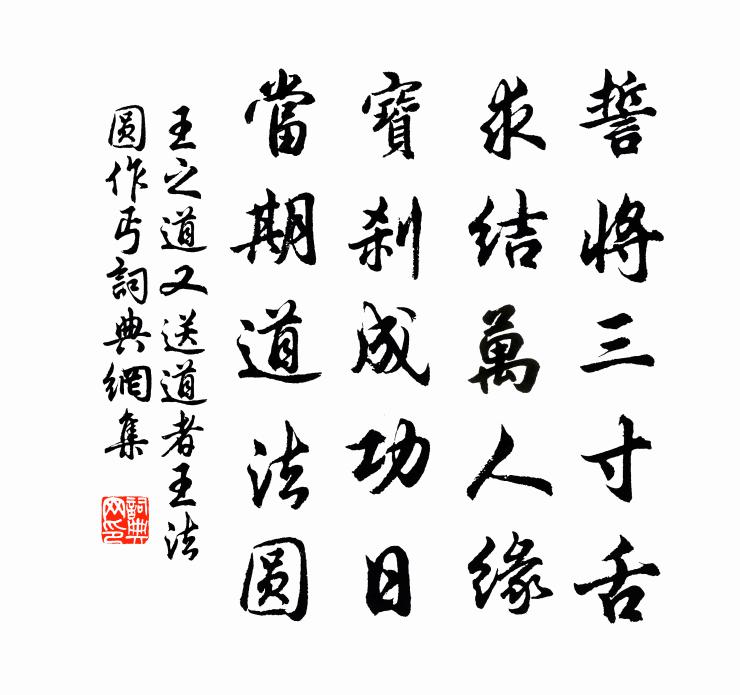 誓將三寸舌
求結萬人緣
寶刹成功日
當期道法圓
王之道又送道者王法
圓作丐詞典網集
詞典
网印